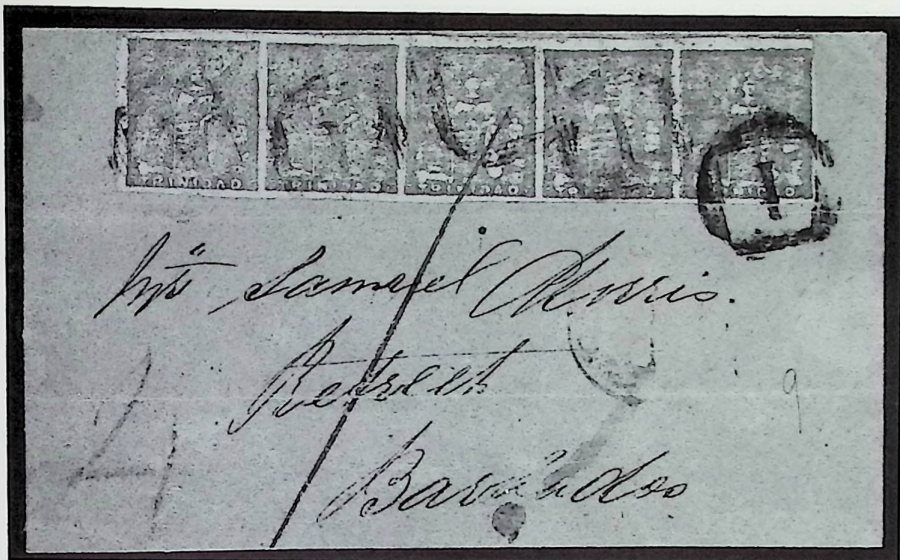 TRINIDAD TRINIDAD TRINIDAD TRINIDAD TRINIDAD
1
Samuel
Retreet
Barbados
4
9